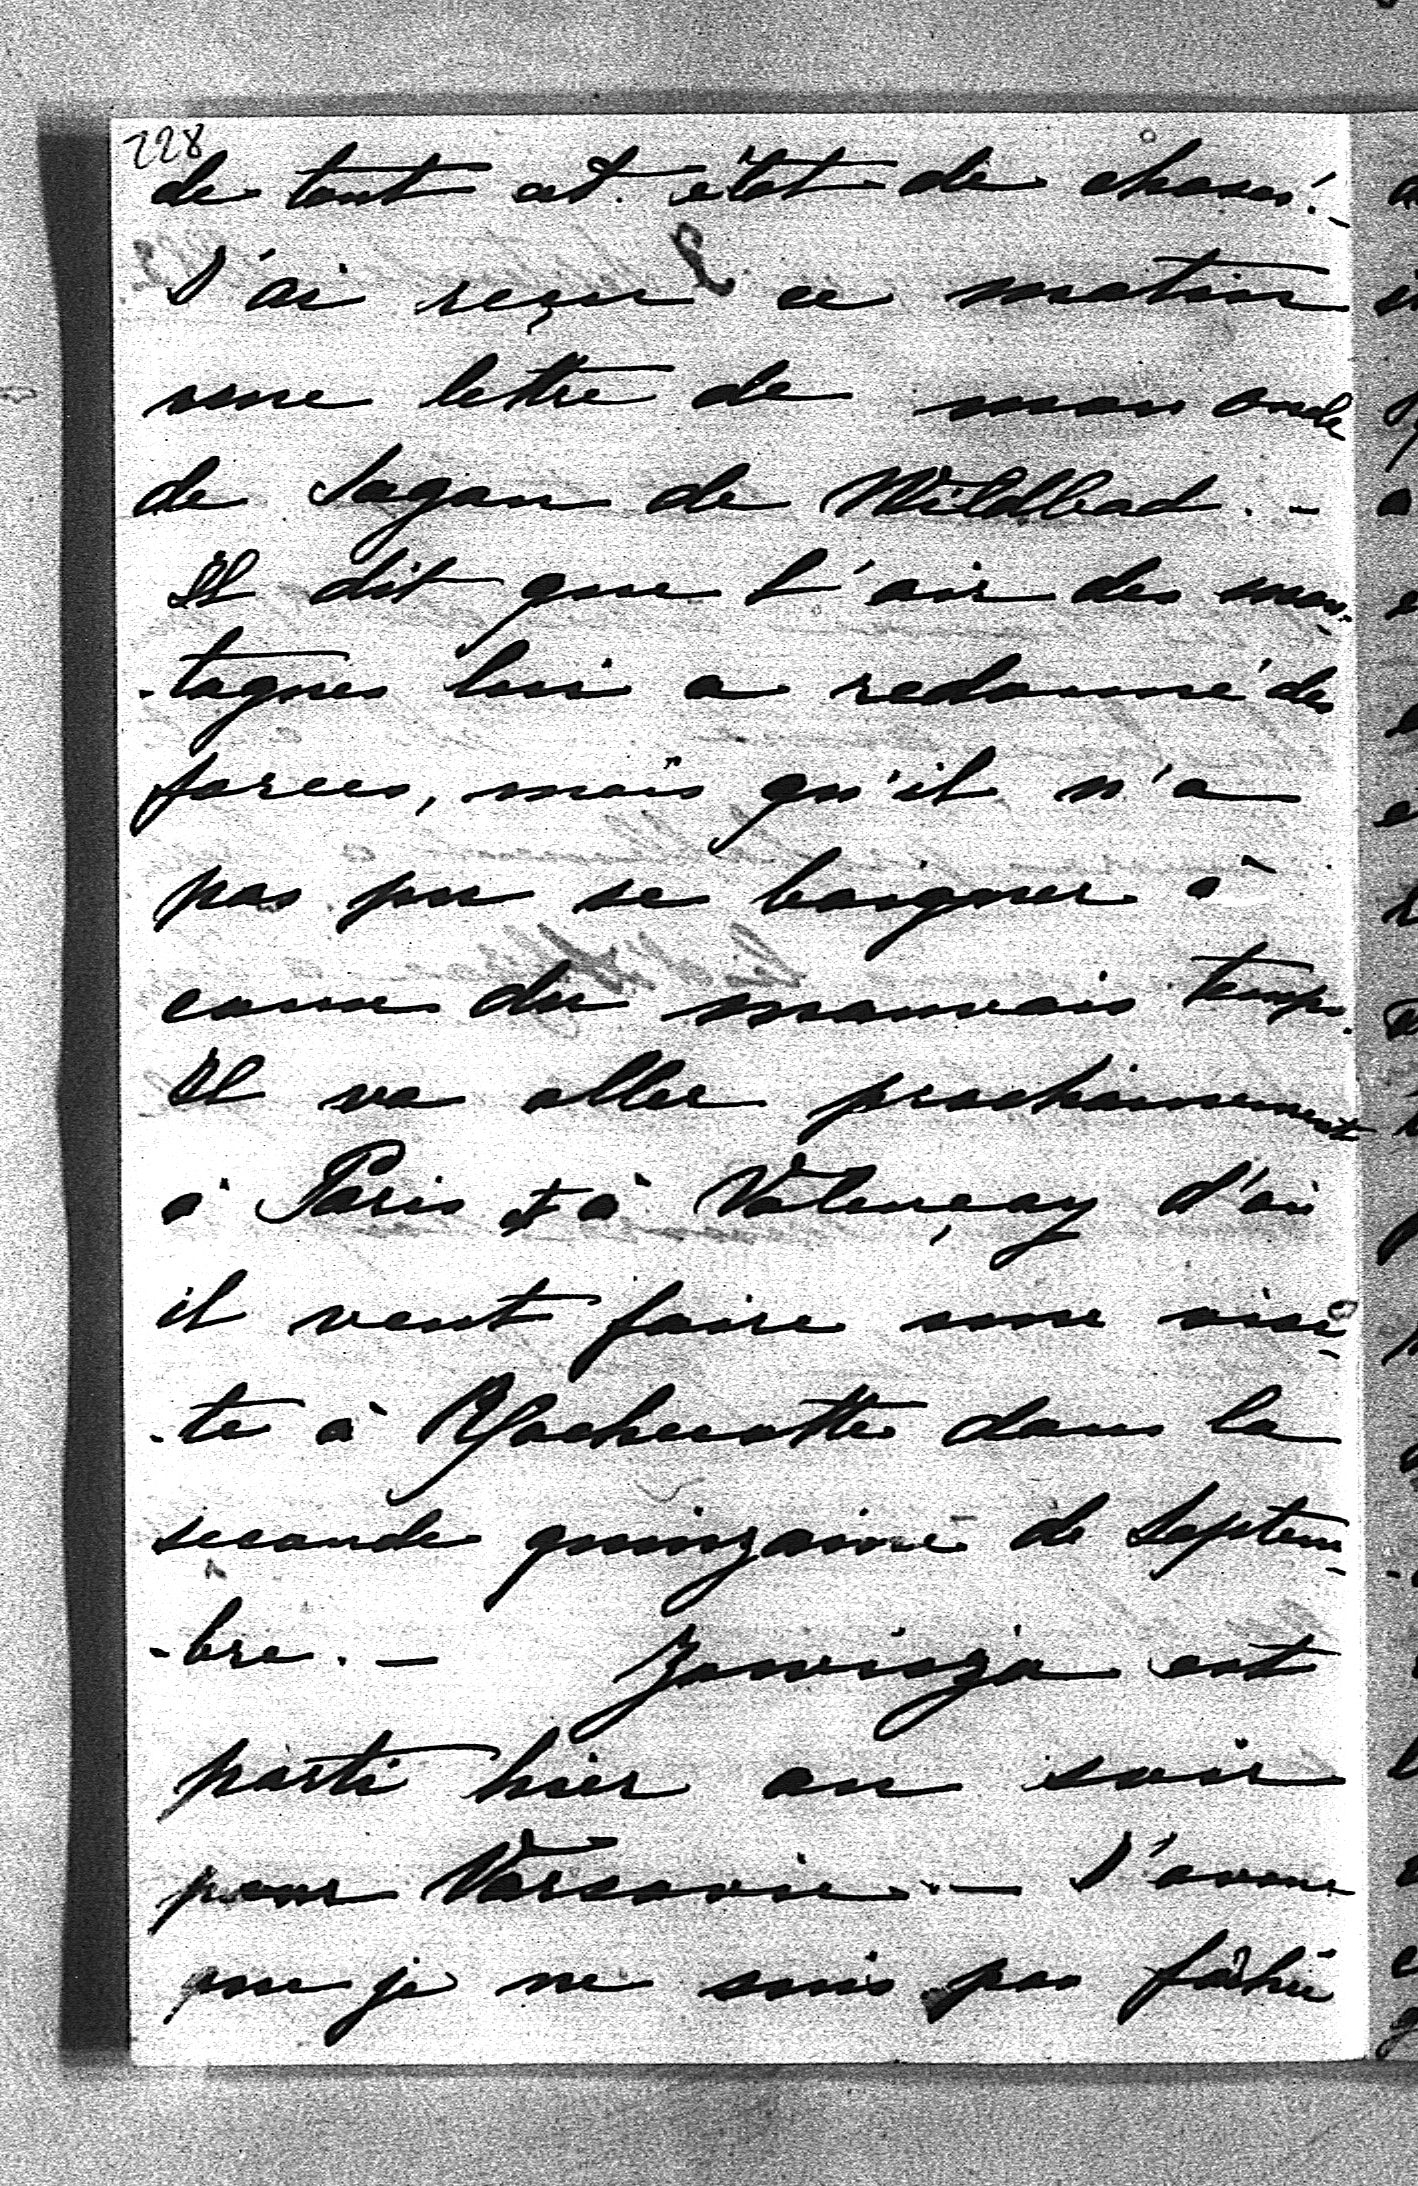 228
de tout cet état de choses!-
J'ai reçu ce matin
une lettre de mon oncle
de Sagan de Wildbad.-
Il dit que l'air des mon-
-tagnes lui a redonné des
forces, mais qu'il n'a
pas pu se baigner à
cause du mauvais temps.
Il va aller prochainement
à Paris & à Valençay d'où
il veut faire une visi-
-te à Rochecotte dans la
seconde quinzaine de Septem-
-bre. - Zawisza est
parti hier au soir
pour Varsovie. - J'avoue
que je ne suis pas fâchée